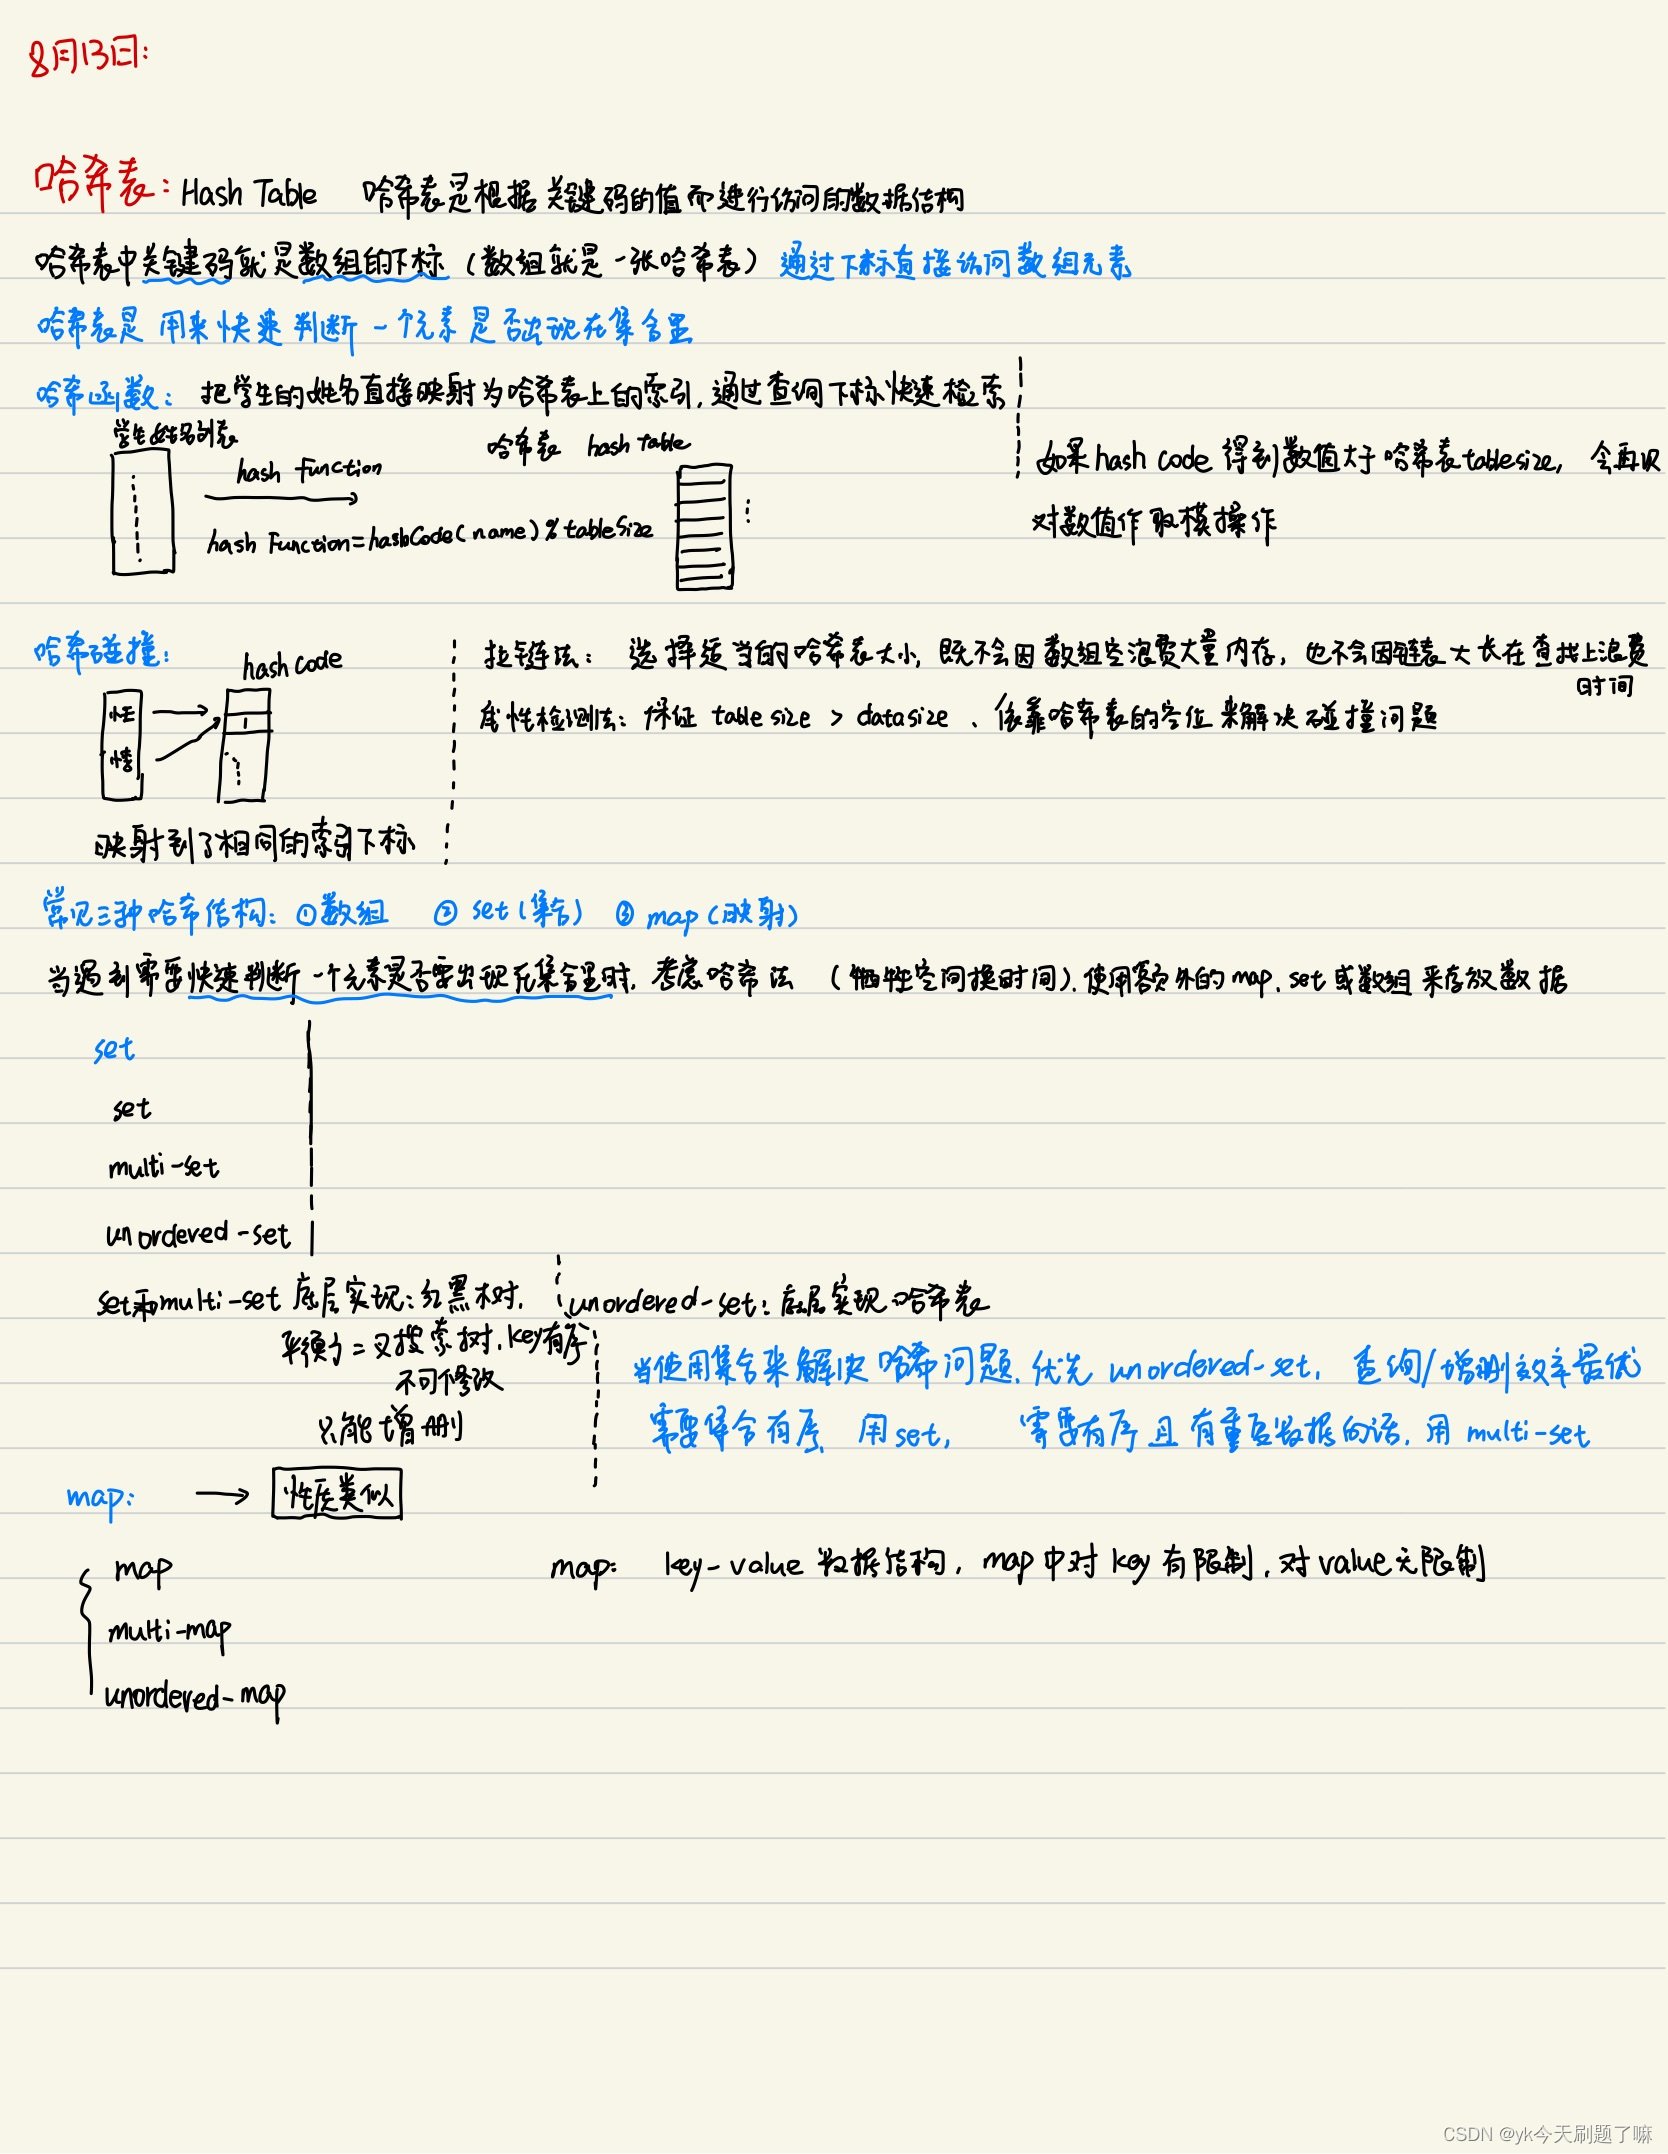 8月13日:
哈希表: Hash Table 哈希表是根据关键码的值而进行访问的数据结构
哈希表中关键码就是数组的下标 (数组就是一张哈希表) 通过下标直接访问数组元素
哈希表是用来快速判断一个元素是否出现在集合里
哈希函数: 把学生的姓名直接映射为哈希表上的索引, 通过查询下标快速检索
学生姓名列表
hash function
哈希表 hash table
hash Function=hashCode(name)%tableSize
如果hash code 得到数值大于哈希表tablesize, 会再次
对数值作取模操作
哈希碰撞:
hash code
映射到了相同的索引下标
拉链法: 选择适当的哈希表大小, 既不会因数组空浪费大量内存, 也不会因链表太长在查找上浪费
时间
线性检测法: 保证 tablesize > datasize 、依靠哈希表的空位来解决碰撞问题
常见三种哈希结构: ①数组 ② set(集合) ③ map(映射)
当遇到需要快速判断一个元素是否要出现在集合里时, 考虑哈希法 (牺牲空间换时间). 使用额外的map. set或数组来存放数据
set
set
multi-set
unordered-set
set和multi-set 底层实现: 红黑树.
平衡二叉搜索树. key有序
不可修改
只能增删
unordered-set: 底层实现哈希表
当使用集合来解决哈希问题. 优先 unordered-set, 查询/增删效率最优
需要集合有序 用set, 需要有序且有重复数据的话. 用 multi-set
map: → 性质类似
map
multi-map
unordered-map
map: key-value 数据结构, map中对key有限制. 对value无限制
CSDN @yk今天刷题了嘛